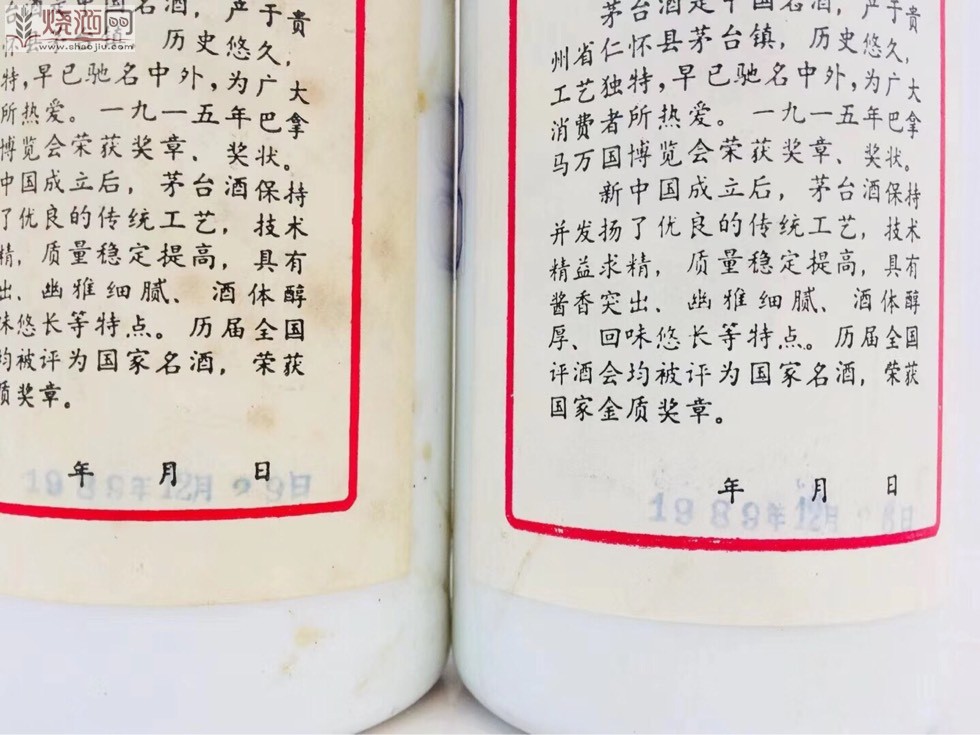 烧酒网
www.shaojiu.com
国名酒，产于贵
怀县茅台镇，历史悠久，
特，早已驰名中外，为广大
所热爱。一九一五年巴拿
博览会荣获奖章、奖状。
中国成立后，茅台酒保持
了优良的传统工艺，技术
精，质量稳定提高，具有
出、幽雅细腻、酒体醇
味悠长等特点。历届全国
均被评为国家名酒，荣获
质奖章。
年 月 日
1989年12月29日
茅台酒是中国名酒，产于贵
州省仁怀县茅台镇，历史悠久，
工艺独特，早已驰名中外，为广大
消费者所热爱。一九一五年巴拿
马万国博览会荣获奖章、奖状。
新中国成立后，茅台酒保持
并发扬了优良的传统工艺，技术
精益求精，质量稳定提高，具有
酱香突出、幽雅细腻、酒体醇
厚、回味悠长等特点。历届全国
评酒会均被评为国家名酒，荣获
国家金质奖章。
年 月 日
1989年12月 8日